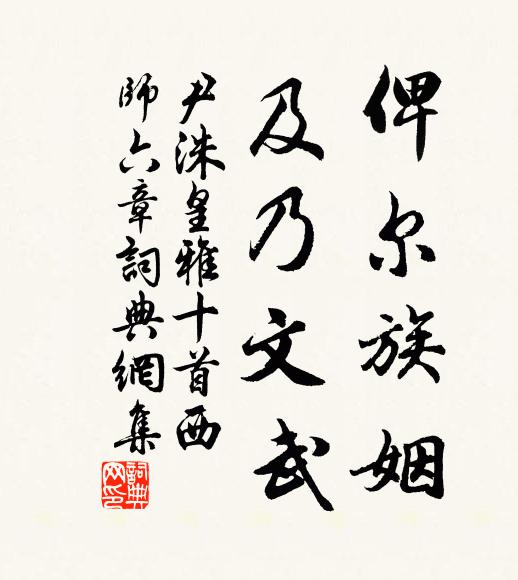 俾尔族姻
及乃文武
尹洙皇雅十首西
师六章詞典網集
詞典网印